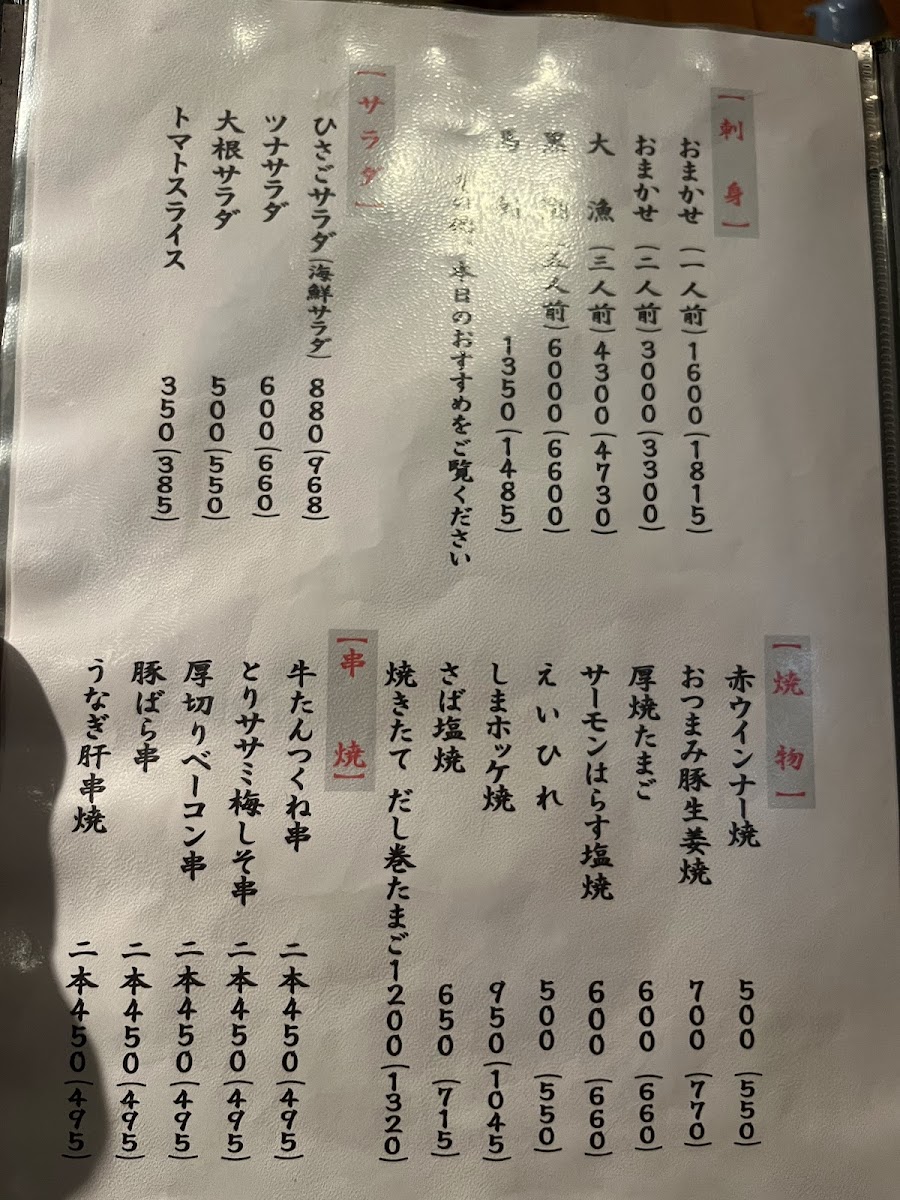 【刺身】
おまかせ(一人前)1600(1815)
おまかせ(二人前)3000(3300)
大漁(三人前)4300(4730)
黒潮(五人前)6000(6600)
馬刺 1350(1485)
本日のおすすめをご覧ください
【サラダ】
ひさごサラダ(海鮮サラダ) 880(968)
ツナサラダ 600(660)
大根サラダ 500(550)
トマトスライス 350(385)
【焼物】
赤ウインナー焼 500(550)
おつまみ豚生姜焼 700(770)
厚焼たまご 600(660)
サーモンはらす塩焼 600(660)
えいひれ 500(550)
しまホッケ焼 950(1045)
さば塩焼 650(715)
焼きたて だし巻たまご1200(1320)
【串焼】
牛たんつくね串 二本450(495)
とりササミ梅しそ串 二本450(495)
厚切りベーコン串 二本450(495)
豚ばら串 二本450(495)
うなぎ肝串焼 二本450(495)